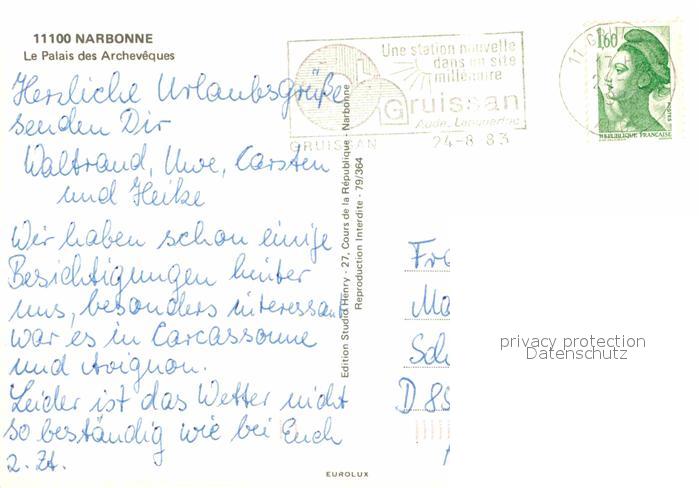 11100 NARBONNE
Le Palais des Archevêques
Herzliche Urlaubsgrüße
senden Dir
Waltraud, Uwe, Carsten
und Heike
Wir haben schon einige
Besichtigungen hinter
uns, besonders interessant
war es in Carcassonne
und Avignon.
Leider ist das Wetter nicht
so beständig wie bei Euch
z. Zt.
Edition Studio Henry - 27, Cours de la République - Narbonne
Reproduction Interdite - 79/364
EUROLUX
Une station nouvelle
dans un site
millénaire
Gruissan
Aude, Languedoc
GRUISSAN 24-8 83
11 G
1,60
POSTES
REPUBLIQUE FRANÇAISE
D 85
privacy protection
Datenschutz